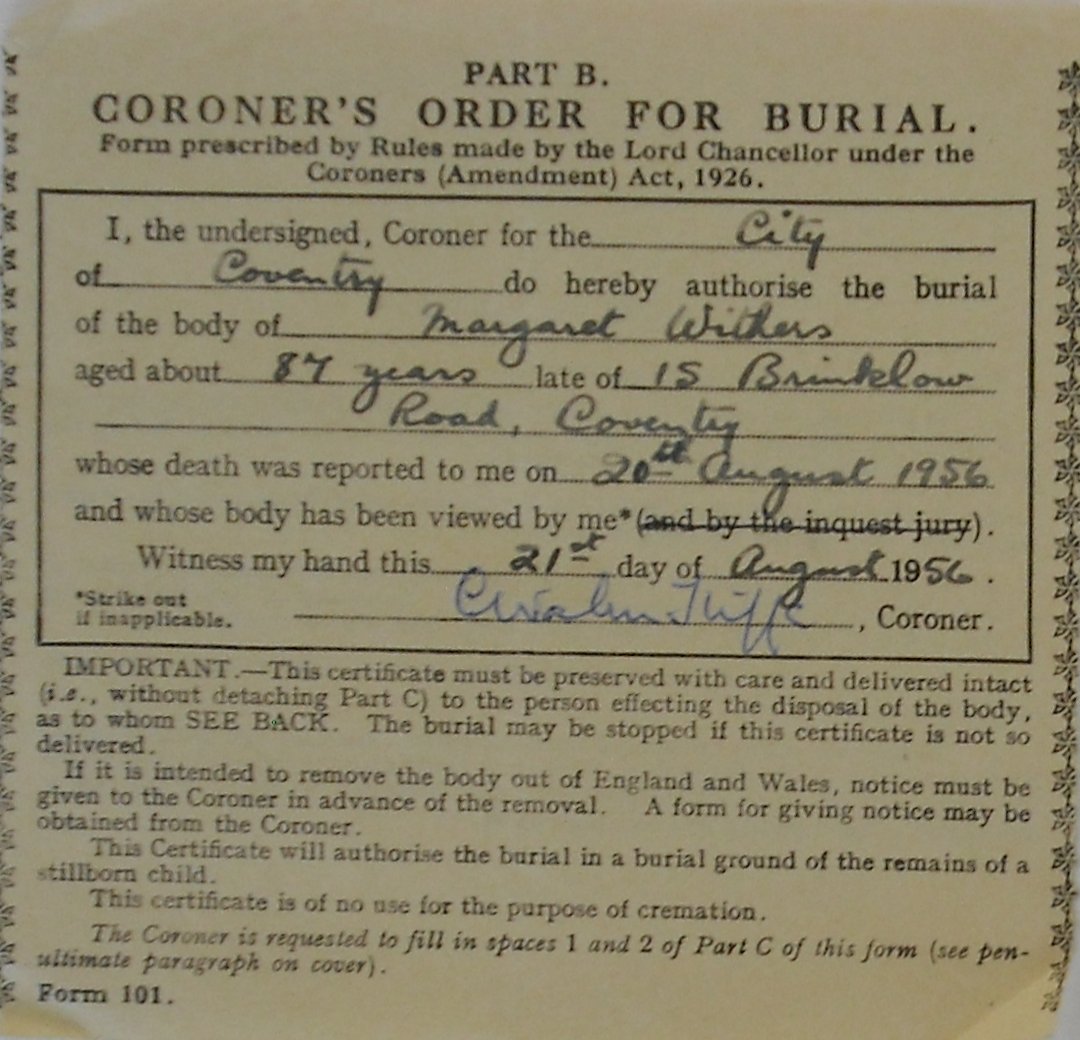 PART B.
CORONER'S ORDER FOR BURIAL.
Form prescribed by Rules made by the Lord Chancellor under the
Coroners (Amendment) Act, 1926.
I, the undersigned, Coroner for the City
of Coventry do hereby authorise the burial
of the body of Margaret Withers
aged about 87 years late of 15 Brinklow
Road, Coventry
whose death was reported to me on 20th August 1956
and whose body has been viewed by me* (and by the inquest jury).
Witness my hand this 21st day of August 1956.
*Strike out
if inapplicable.
Iliffe, Coroner.
IMPORTANT.—This certificate must be preserved with care and delivered intact
(i.e., without detaching Part C) to the person effecting the disposal of the body,
as to whom SEE BACK. The burial may be stopped if this certificate is not so
delivered.
If it is intended to remove the body out of England and Wales, notice must be
given to the Coroner in advance of the removal. A form for giving notice may be
obtained from the Coroner.
This Certificate will authorise the burial in a burial ground of the remains of a
stillborn child.
This certificate is of no use for the purpose of cremation.
The Coroner is requested to fill in spaces 1 and 2 of Part C of this form (see pen-
ultimate paragraph on cover).
Form 101.